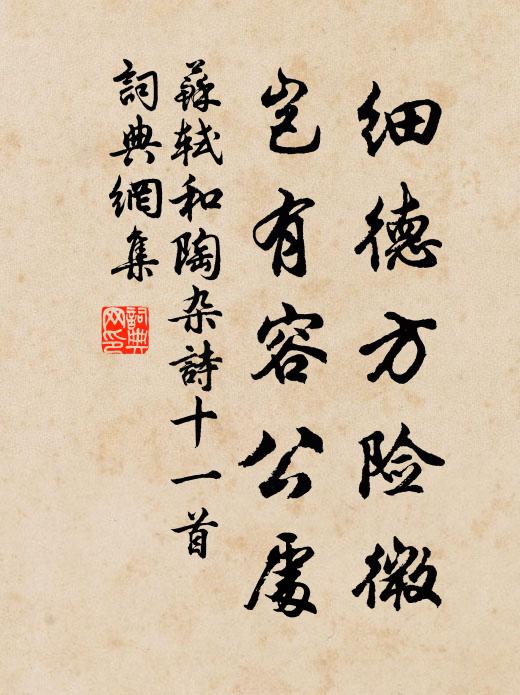 细德方险微
岂有容公處
蘇轼和陶杂詩十一首
詞典網集
詞典网印